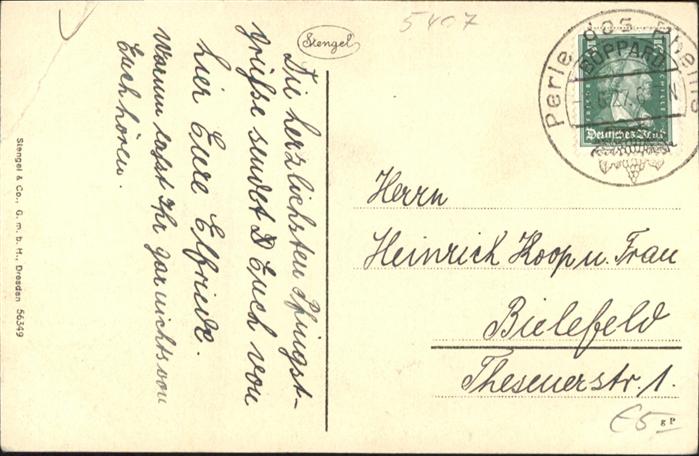 Stengel
5407
Die herzlichsten Pfingst-
grüße sendet Euch von
hier Eure Elfriede.
Warum lasst Ihr gar nichts von
Euch hören.
Stengel & Co., G. m. b. H., Dresden 56349
Perle des Rheins
BOPPARD
Deutsches Reich
Herrn
Heinrich Koop u. Frau
Bielefeld
Thesenerstr. 1.
€5-
g P